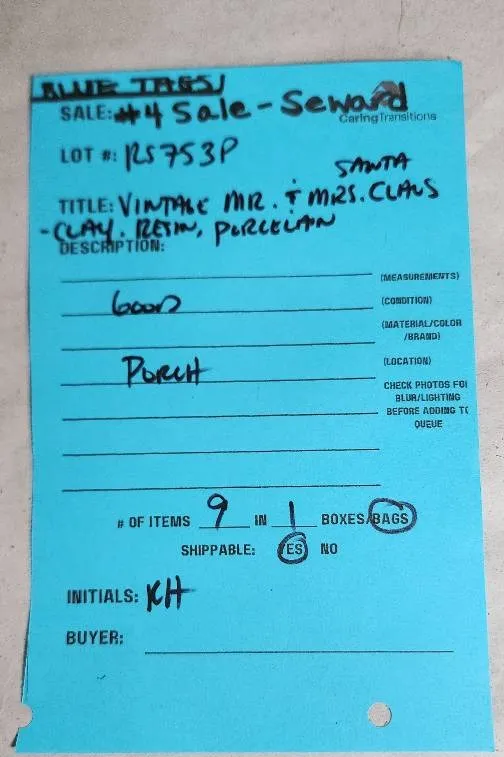 BLUE TAGS
SALE: #4 Sale - Seward
CaringTransitions
LOT #: RS753P
SANTA
TITLE: VINTAGE MR. & MRS. CLAUS
- CLAY. RESIN, PORCELAIN
DESCRIPTION:
(MEASUREMENTS)
GOOD (CONDITION)
(MATERIAL/COLOR
/BRAND)
PORCH (LOCATION)
CHECK PHOTOS FOR
BLUR/LIGHTING
BEFORE ADDING TO
QUEUE
# OF ITEMS 9 IN 1 BOXES/BAGS
SHIPPABLE: YES NO
INITIALS: KH
BUYER: